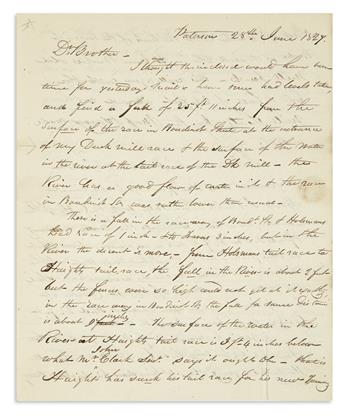 Paterson 28th June 1827.
Dr Brother —
I thought the inclosed would have been in
time for yesterday's mail & have since had levels taken
and find a fall of 25 ft 11 inches from the
surface of the race in Boudinot Street at the entrance
of my Duck mill race & the surface of the water
in the river at the tail race of the Dk mill — the
River has a good flow of water in it & the race
in Boudinot St was rather lower than usual —
There is a fall in the race way of Boudt St of Holsmans
race of 1 inch — to Devons 3 inches, but in the
River the descent is more — from Holsmans tail race to
Haights tail race, the fall in the River is about 2 feet
but the fences were so high could not get at it exactly,
in the race way in Boudinot St the fall for same distance
is about — The surface of the water in the
River at Haights tail race is 3 ft 4 inches below
what Mr John Clark Senr says it ought to be — that is
Haight has sunk his tail race for his new